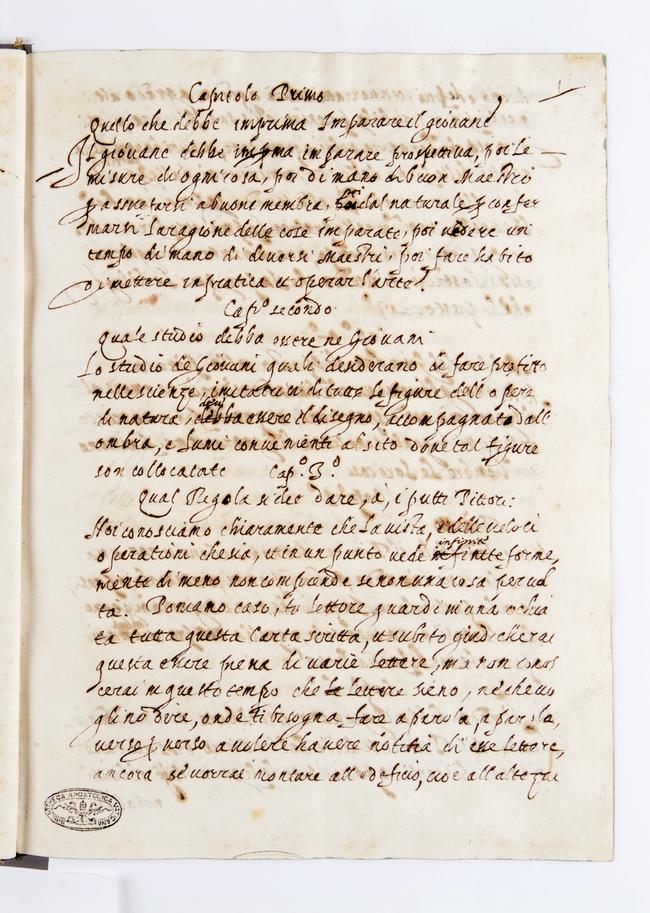 1
Capitolo Primo
Quello che debbe imprima Imparare il giovane
Il giovane debbe imp̶r̶ima imparare prospettiva, poi le
misure di ogni cosa, poi di mano di buon Maestri
p assuefarsi a buone membra, poi dal naturale p confer
marsi la ragione delle cose imparate, poi vedere un
tempo di mano di diversi Maestri, poi fare habito
di mettere in pratica et operar l'arte.
Cap.o secondo
Quale studio debba essere ne Giovani
Lo studio de Giovani quali desiderano di fare profitto
nelle scienze, imitatrici di tutte le figure dell opere
di natura, devi debba essere il disegno, accompagnato dall
ombra, e lumi convenienti al sito dove tal figure
son collocatate Cap.o 3.o
Qual Regola si dee dare, à, i putti Pittori:
Noi conosciamo chiaramente che la vista, è delle veloci
operationi che sia, et in un punto vede infinite infinite forme,
niente di meno non comprende se non una cosa per vol
ta. Poniamo caso, tu lettore guardi in una ochia
ta tutta questa Carta scritta, et subito giudicherai
questa essere piena di varie lettere, ma non conos
cerai in questo tempo che le lettere sieno, nè che vo
glino dire, onde ti bisogna fare a parola, a parola,
verso p verso a volere havere notitia di esse lettere,
ancora se vorrai montare all edeficio, cioè all altezza
BIBLIOTHECA APOSTOLICA VATICANA